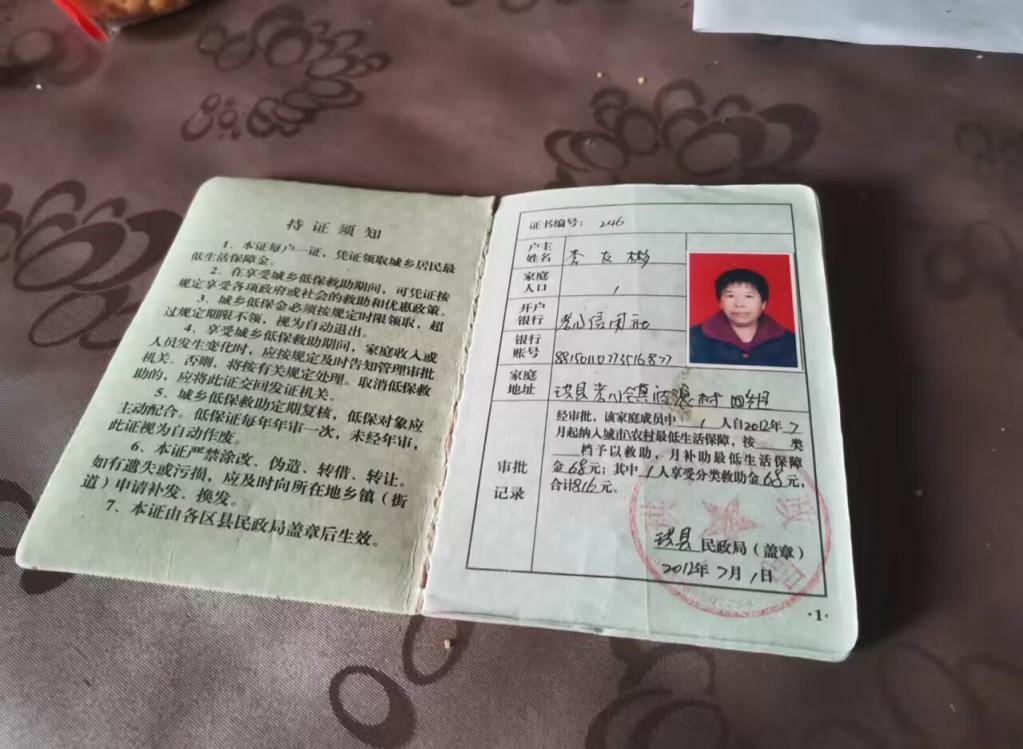 持证须知
1、本证每户一证，凭证领取城乡居民最
低生活保障金。
2、在享受城乡低保救助期间，可凭证按
规定享受各项政府或社会的救助和优惠政策。
3、城乡低保金必须按规定时限领取，超
过规定期限不领，视为自动退出。
4、享受城乡低保救助期间，家庭收入或
人员发生变化时，应按规定及时告知管理审批
机关。否则，将按有关规定处理。取消低保救
助的，应将此证交回发证机关。
5、城乡低保救助定期复核，低保对象应
主动配合。低保证每年年审一次，未经年审，
此证视为自动作废。
6、本证严禁涂改、伪造、转借、转让。
如有遗失或污损，应及时向所在地乡镇（街
道）申请补发、换发。
7、本证由各区县民政局盖章后生效。
证书编号： 246
户主
姓名
李友彬
家庭
人口
1
开户
银行
信用社
银行
账号
家庭
地址
珙县 镇 村 四组
审批
记录
经审批，该家庭成员中 1 人自2012年7
月起纳入城市\农村最低生活保障，按 类
档予以救助，月补助最低生活保障
金68元；其中1人享受分类救助金68元，
合计816元。
珙县 民政局（盖章）
2012年7月1日
·1·